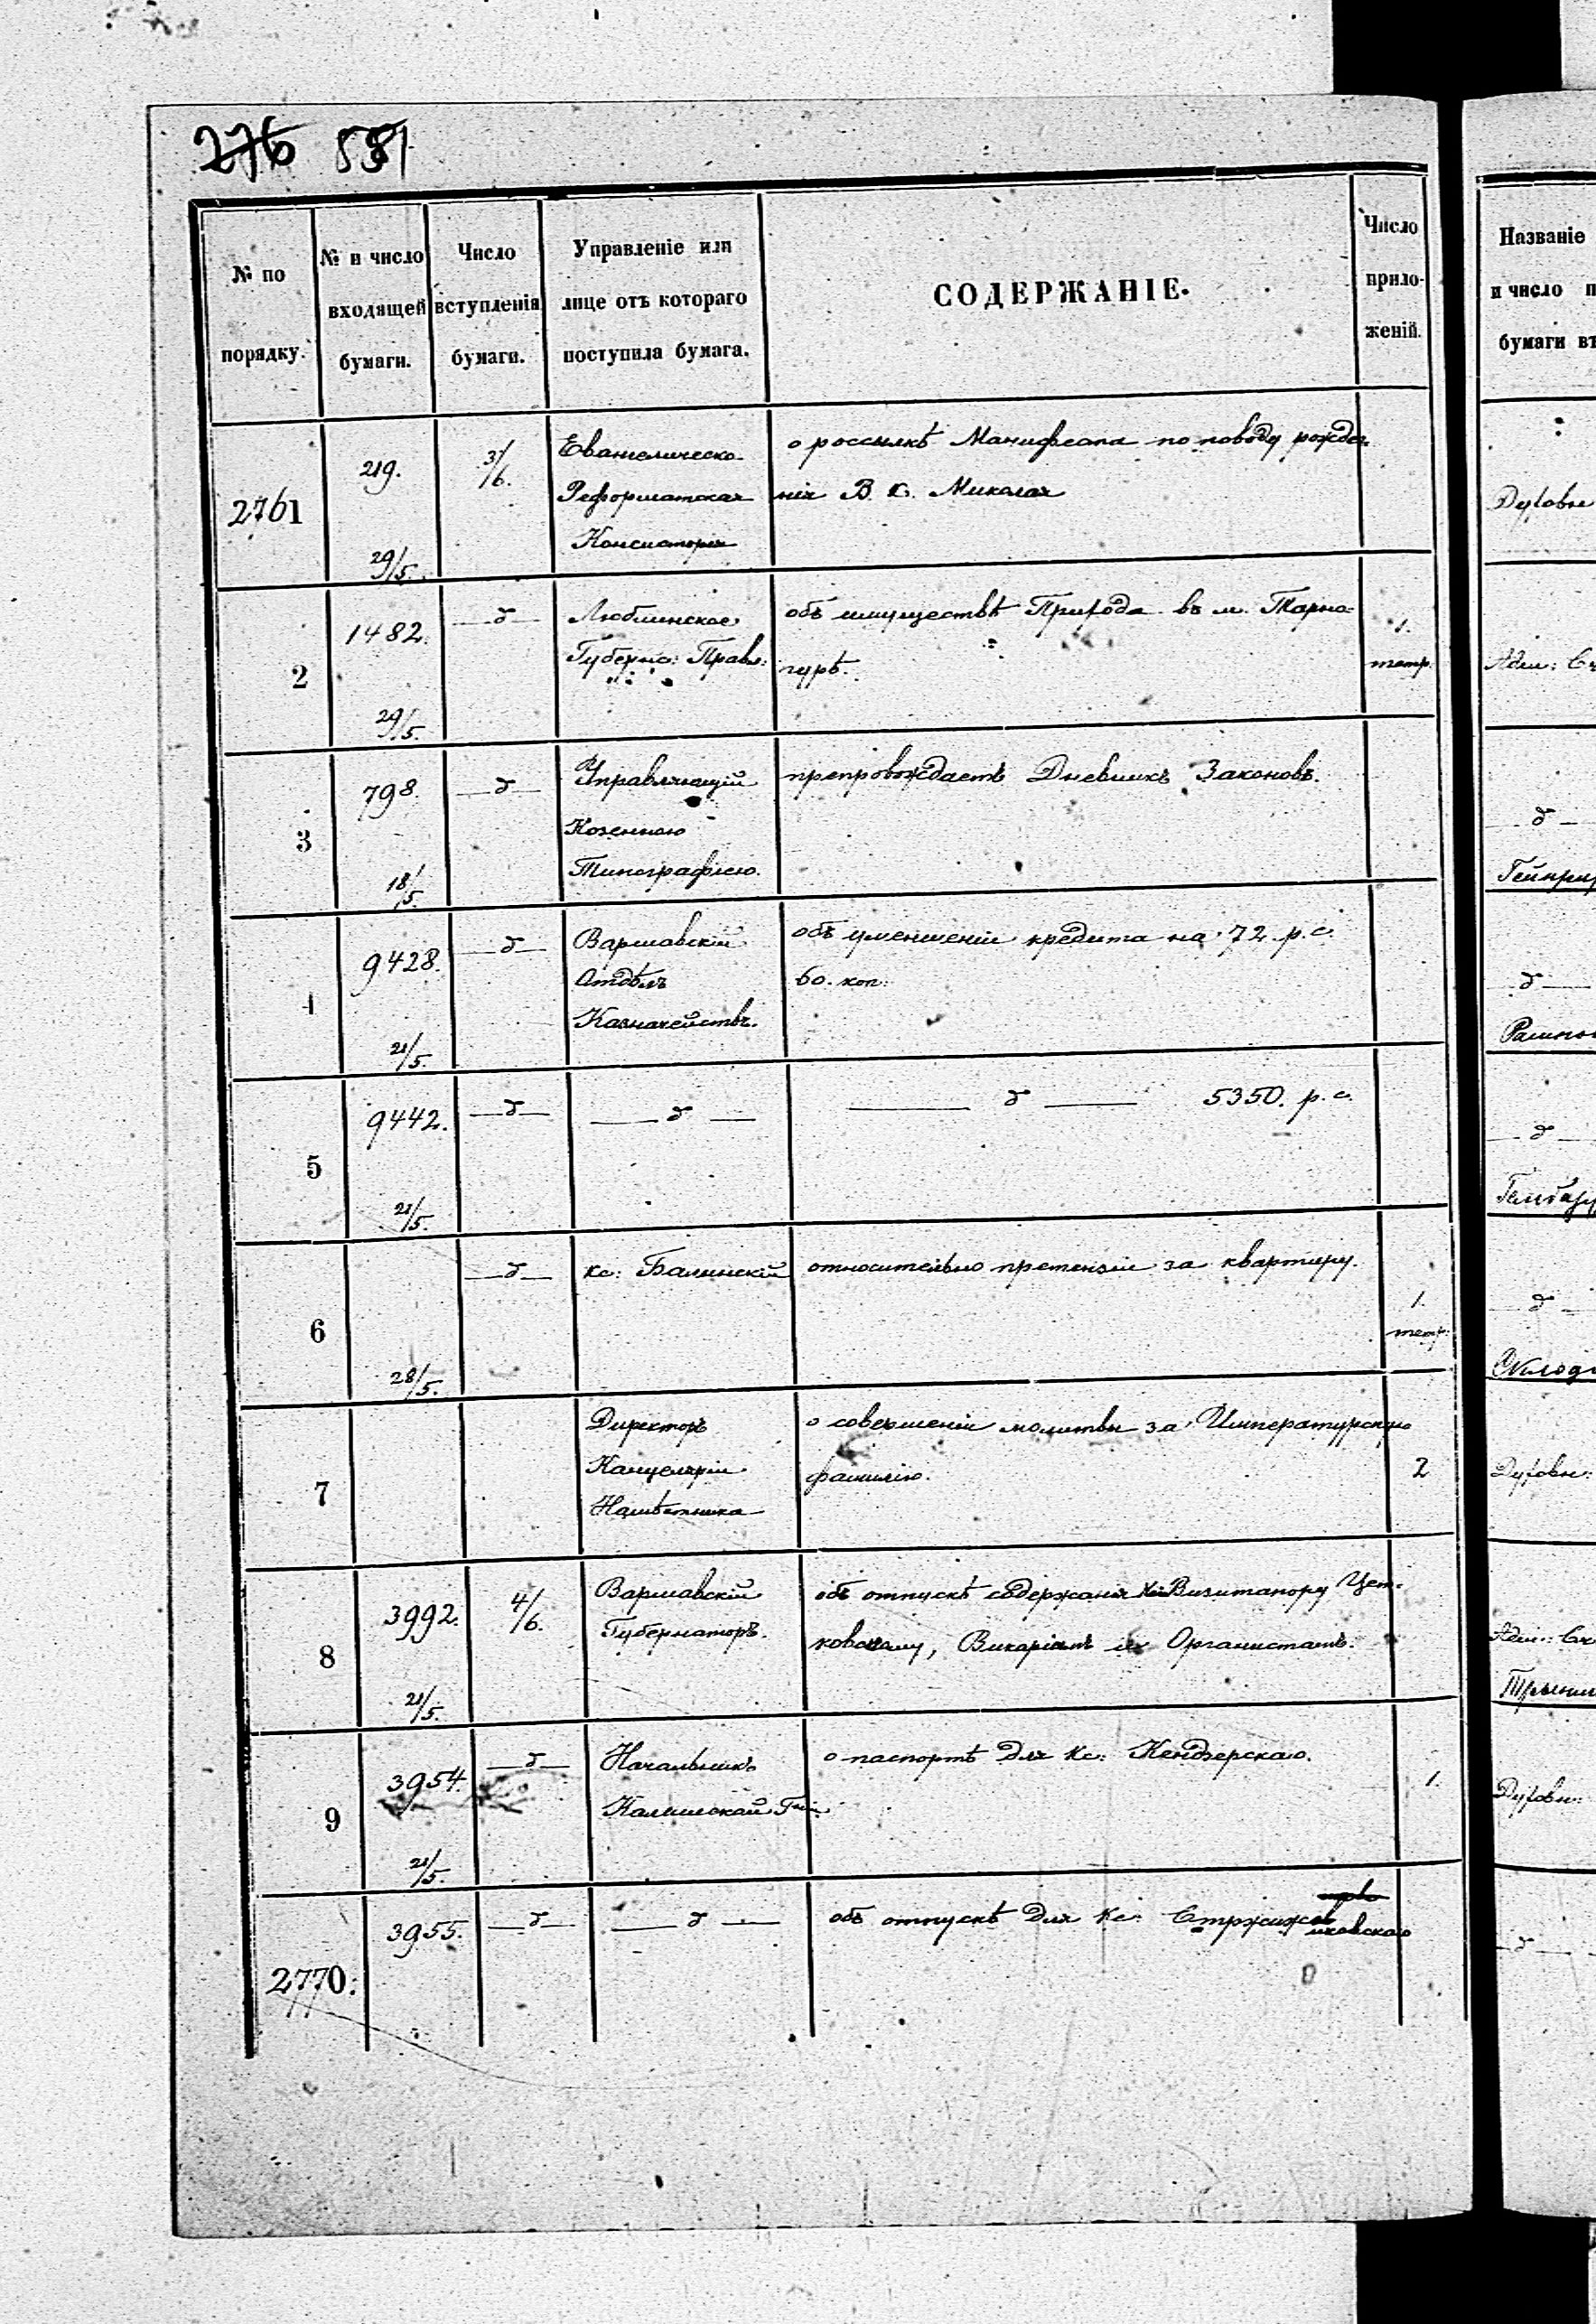 276 581
№ по порядку.
№ и число входящей бумаги.
Число вступленія бумаги.
Управленіе или лице отъ котораго поступила бумага.
СОДЕРЖАНІЕ.
Число прило- женій.
2761
219.
29/5.
3/6.
Евангелическо-
Реформатская
Консисторія
о россылкѣ Манифеста по поводу рожде-
нія В. К. Николая
2
1482.
29/5.
— d —
Люблинское
Губернс: Правл:
объ имуществѣ Прихода въ м. Тарно-
гурѣ.
1.
тетр.
3
798.
18/5.
— d —
Управляющій
Козенною
Типографіею.
препровождаетъ Дневникъ Законовъ.
4
9428.
21/5.
— d —
Варшавскій
Отдѣлъ
Казначействъ.
объ уменшеніи кредита на 72 р. с.
60. коп:
5
9442.
21/5.
— d —
— d —
— d — 5350. р. с.
6
28/5.
— d —
кс: Балинскій
относительно претензіи за квартиру.
1.
тетр:
7
Директоръ
Канцеляріи
Намѣстника
о совешеніи молитвы за Импературскую
фамилію.
2
8
3992.
21/5.
4/6.
Варшавскій
Губернаторъ.
объ отпускѣ содержанія Визитатору Цет-
ковскому, Викаріямъ и Органистамъ.
9
3954.
21/5.
— d —
Начальникъ
Калишской Гіи:
о паспортѣ для Кс: Кендзерскаго.
1.
2770.
3955.
— d —
— d —
объ отпускѣ для Кс:
Названіе
и число п
бумаги въ
Духовн
Адм: Сч
— d —
Гейнрих
— d —
— d —
— d —
Духовн:
Адм: Сч
Духовн:
— d —